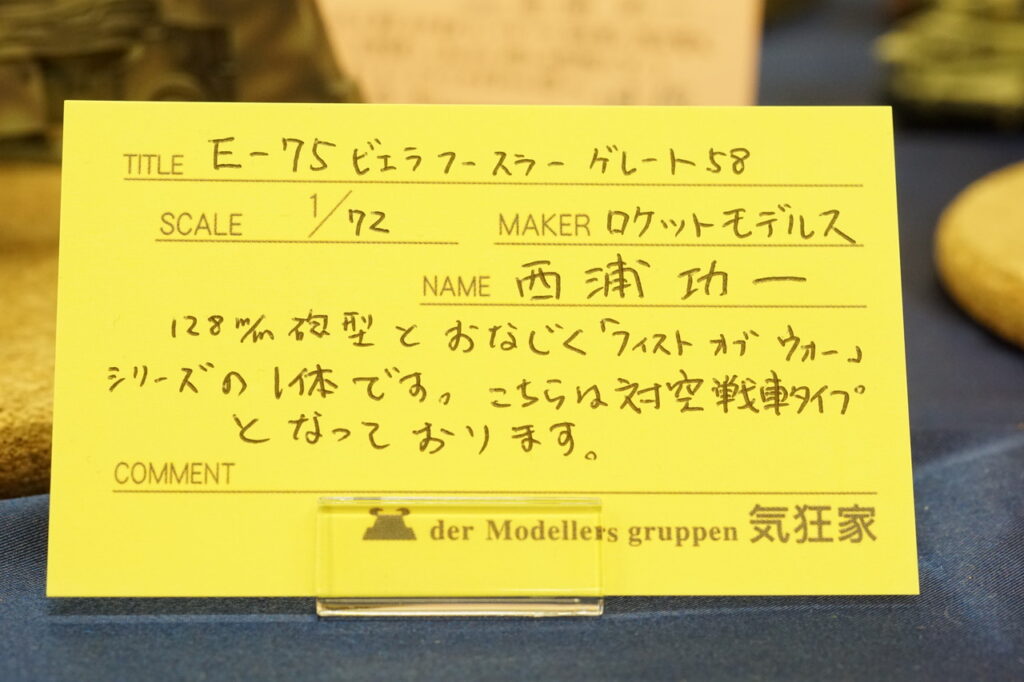 TITLE E-75 ビエラフースラー ゲレート58
SCALE 1/72
MAKER ロケットモデルス
NAME 西浦 功一
128㎜砲型とおなじく「フィスト オブ ウォー」
シリーズの1体です。こちらは対空戦車タイプ
となっております。
COMMENT
der Modellers gruppen 気狂家